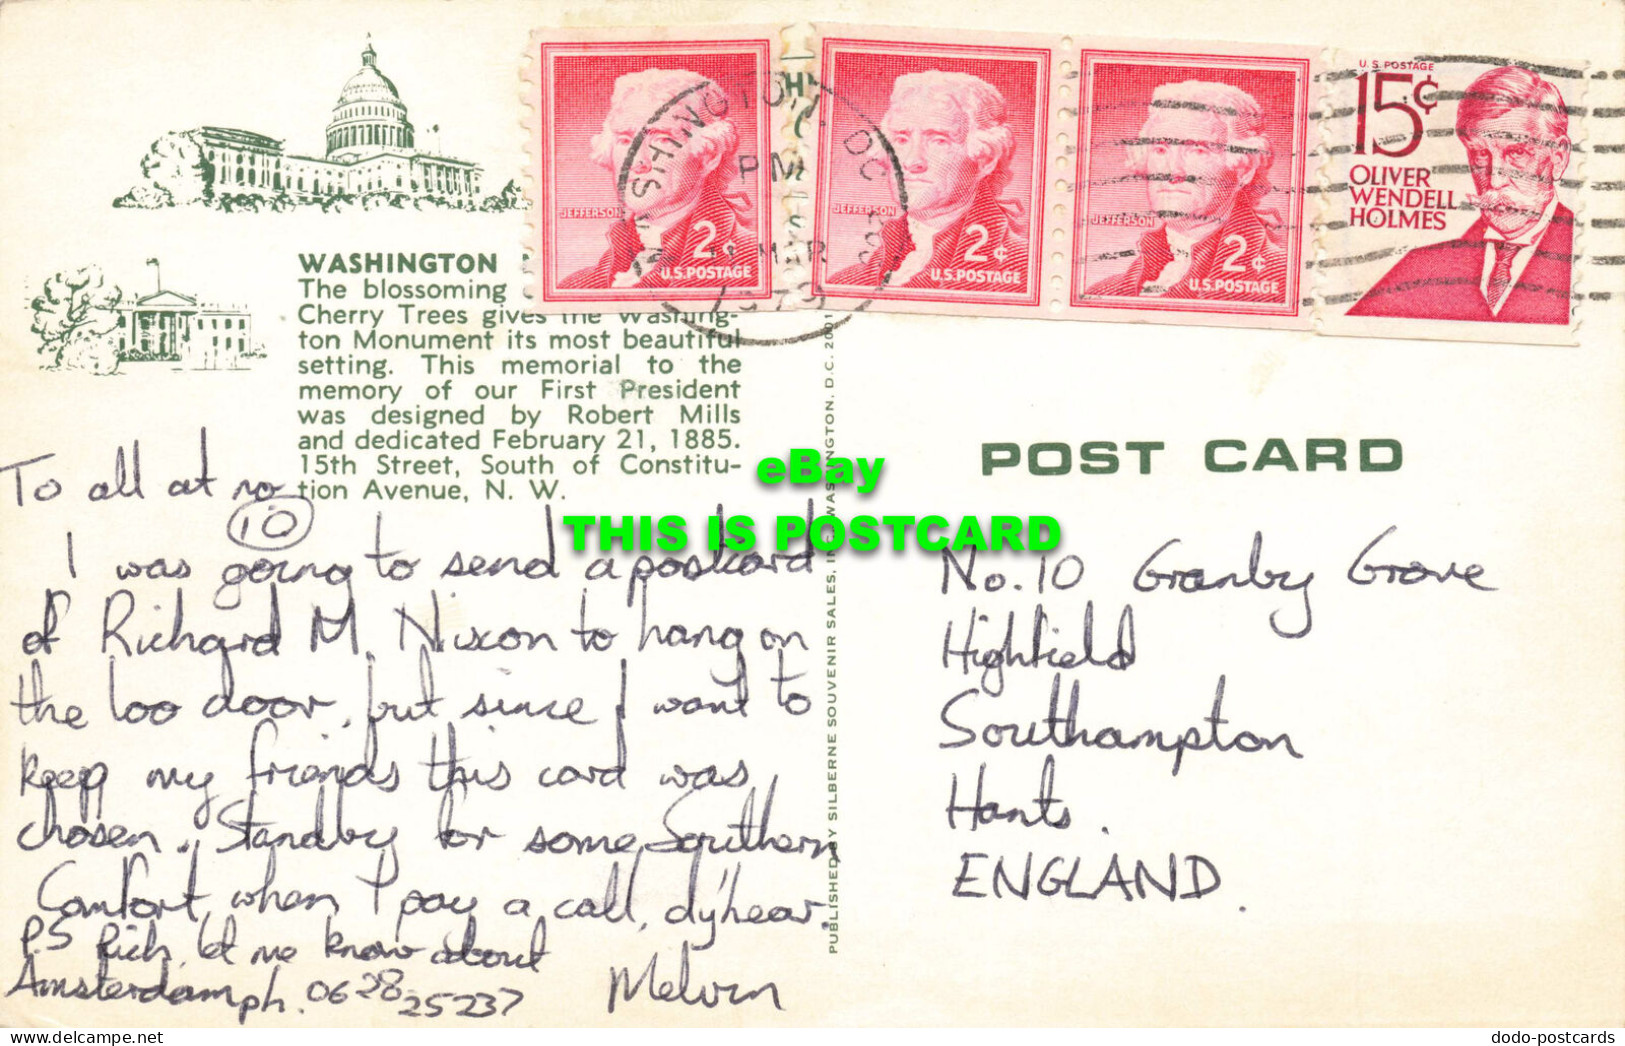 WASHINGTON
The blossoming
Cherry Trees gives the Washing-
ton Monument its most beautiful
setting. This memorial to the
memory of our First President
was designed by Robert Mills
and dedicated February 21, 1885.
15th Street, South of Constitu-
tion Avenue, N. W.
JEFFERSON
2¢
U.S. POSTAGE
JEFFERSON
2¢
U.S. POSTAGE
JEFFERSON
2¢
U.S. POSTAGE
U.S. POSTAGE
15¢
OLIVER
WENDELL
HOLMES
WASHINGTON, DC
PM
MAR
1979
To all at no
10
I was going to send a postcard
of Richard M. Nixon to hang on
the loo door, but since I want to
keep my friends this card was
chosen. Standby for some Southern
Comfort, when I pay a call, d'y'hear.
P.S Rich, let me know about
Amsterdam ph. 0628 25237
Melvin
PUBLISHED BY SILBERNE SOUVENIR SALES, INC. WASHINGTON, D.C. 2001
POST CARD
No. 10 Granby Grove
Highfield
Southampton
Hants.
ENGLAND.
eBay
THIS IS POSTCARD
delcampe.net
dodo-postcards